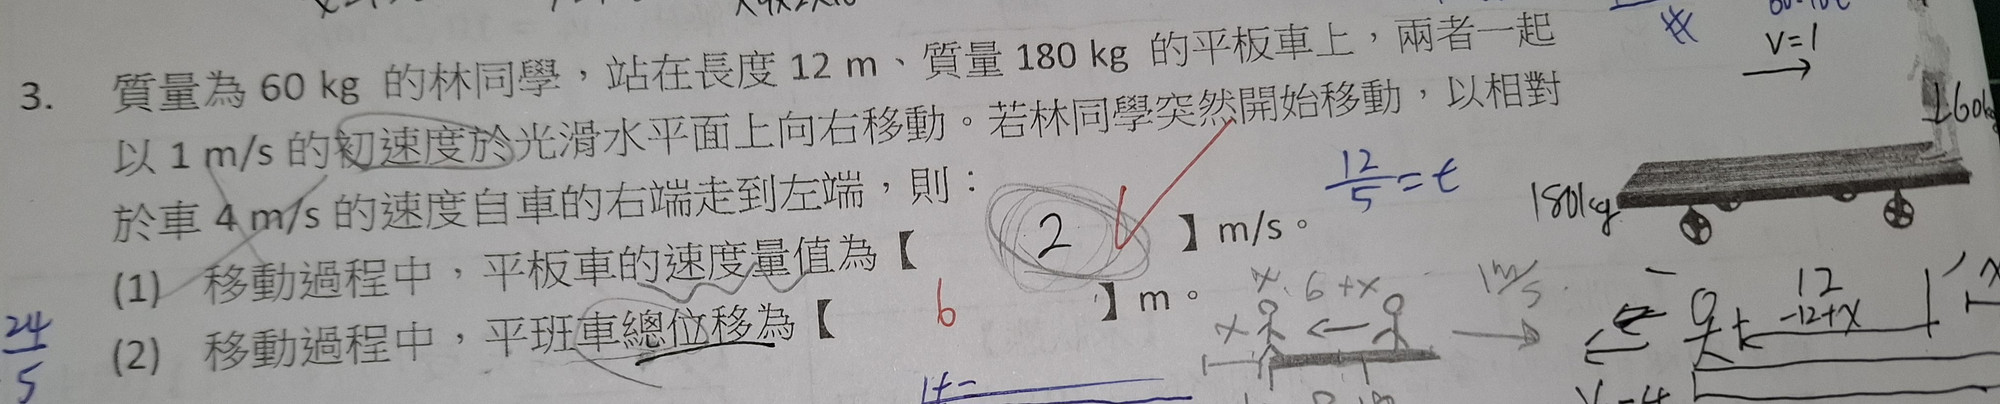 V=1
3. 質量為 60 kg 的林同學，站在長度 12 m、質量 180 kg 的平板車上，兩者一起
以 1 m/s 的初速度於光滑水平面上向右移動。若林同學突然開始移動，以相對
於車 4 m/s 的速度自車的右端走到左端，則：
12/5 = t
180kg
(1) 移動過程中，平板車的速度量值為【 2 】m/s。
(2) 移動過程中，平班車總位移為【 6 】m。
24/5
x 6+x
x
1m/s
12
-12+x